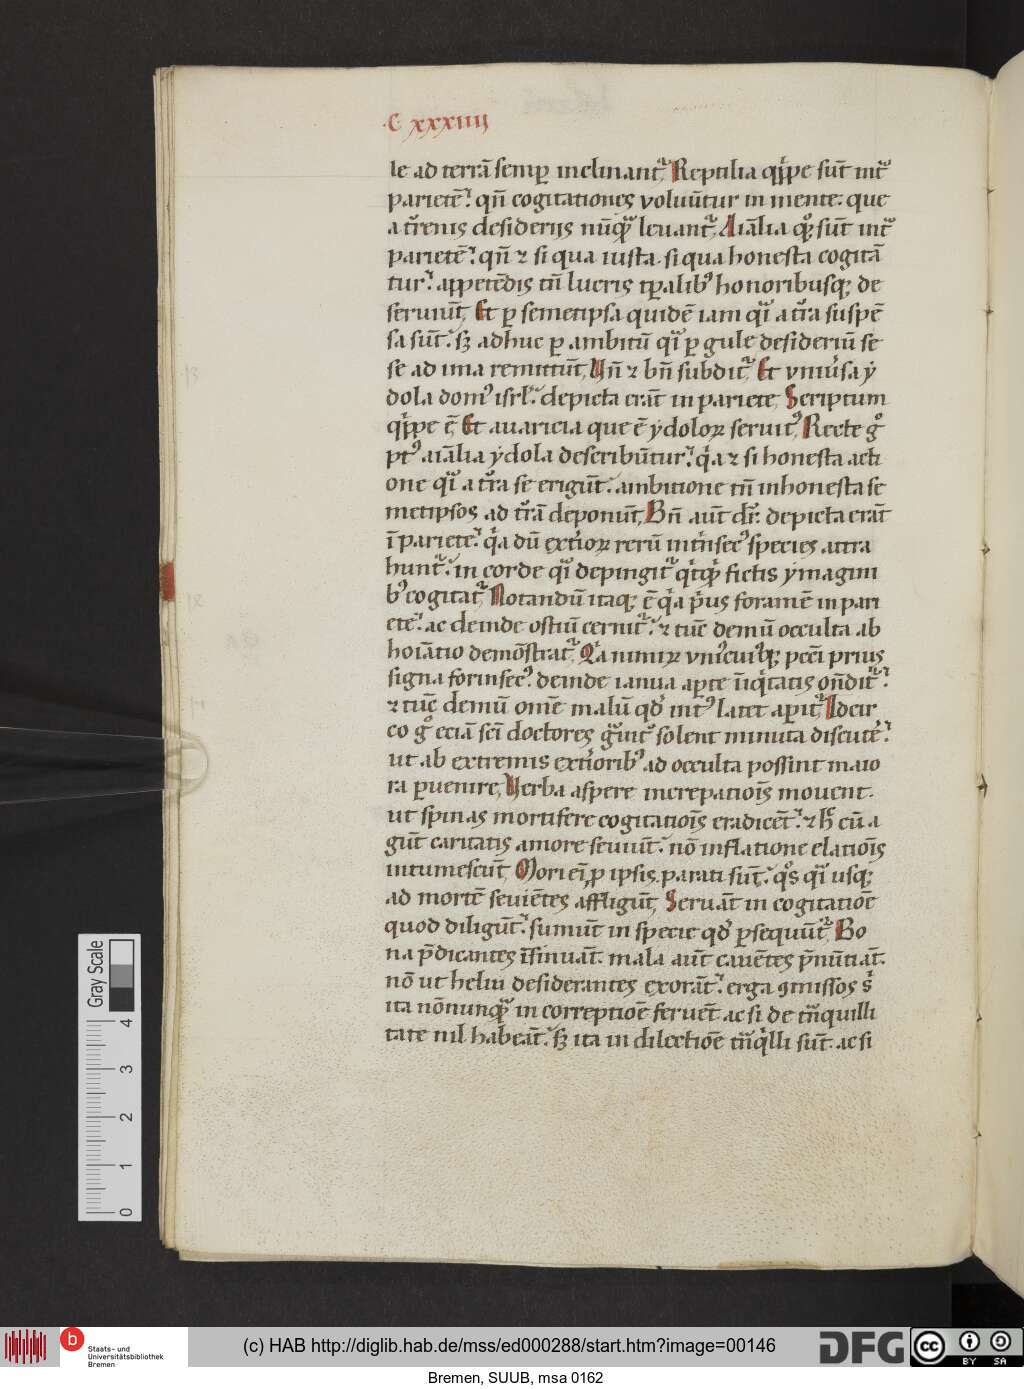 C xxxiiij
le ad terrā semꝑ inclinantᷣ Reptilia qͥppe sūt intᷓ
parietē. qn̄ cogitationes voluūtur in mente. que
a tr̄enis desiderijs nūqͣ leuantᷣ. Aiālia qꝫ sūt intᷓ
parietē. qn̄ ⁊ si qua iusta. si qua honesta cogitā
tur. appetēdis tn̄ lucris tꝑalibꝰ honoribusqꝫ de
seruiūt, Et ꝑ semetipsa quidē iam qͣi a tr̄a suspē
sa sūt. sꝫ adhuc ꝑ ambitū qͣi ꝑ gule desideriū se
se ad ima remittūt, Vn̄ ⁊ bn̄ subditᷣ Et vniūsa y
dola domꝰ isrl̄. depicta erāt in pariete, Scriptum
qͥppe ē, Et auaricia que ē ydoloꝝ seruitꝰ, Recte gͦ
ptꝰ aiālia ydola describūtur. qͥa ⁊ si honesta acti
one qͣi a tr̄a se erigūt. ambitione tn̄ inhonesta se
metipsos ad tr̄ā deponūt, Bn̄ aūt dr̄. depicta erāt
ī pariete. qͥa dū ext̓ioꝝ rerū int̓nsecꝰ species attra
huntᷣ. in corde qͣi depingitᷣ qͥcͥd fictis ymagini
bꝰ cogitatᷣ, Notandū itaqꝫ ē qͥa p̓us foramē in pari
ete. ac deinde ostiū cernitᷣ. ⁊ tūc demū occulta ab
hoīatio demōstratᷣ, Qͥa nimiꝝ vniᷤcuiᷤqꝫ pcc̄i prius
signa forinsecꝰ. deinde ianua apͣte iniqͥtatis on̄ditᷣ.
⁊ tūc demū omē malū qd̓ intꝰ latet aꝑitᷣ Idcir
co gͦ eciā sc̄i doctores gͣuit̓ solent minuta discutē.
ut ab extremis ext̓ioribꝰ ad occulta possint maio
ra ꝑuenire, Verba aspere increpatiois mouent.
ut spinas mortifere cogitatiois eradicēt. ⁊ h̓ cū a
gūt caritatis amore seuiūt. nō inflatione elatiois
intumescūt, Mori ei ꝓ ipsis parati sūt. qͦs qͣi usqꝫ
ad mortē seuiētes affligūt, Seruāt in cogitatiōe
quod diligūt. sumūt in specie qd̓ ꝑsequūtᷣ. Bo
na p̄dicantes īsinuāt. mala aūt cauētes p̄nūtiāt.
nō ut heliu desiderantes exorāt. erga ꝯmissos s̓
ita nōnunqͣ in correptiōe feruēt ac si de tͣnquilli
tate nil habeāt. sꝫ ita in dilectiōe tͣnqͥlli sūt. ac si
Gray Scale
4
3
2
1
0
b
Staats- und
Universitätsbibliothek
Bremen
(c) HAB http://diglib.hab.de/mss/ed000288/start.htm?image=00146
DFG
cc
BY SA
Bremen, SUUB, msa 0162